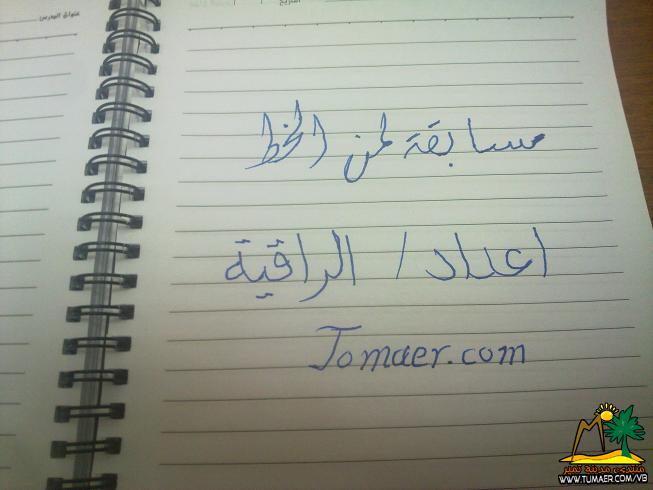 عنوان الدرس
التاريخ
مسابقة لمن الخط
اعداد / الراقية
Tomaer.com
منتدى مدينة تمير
WWW.TUMAER.COM/VB